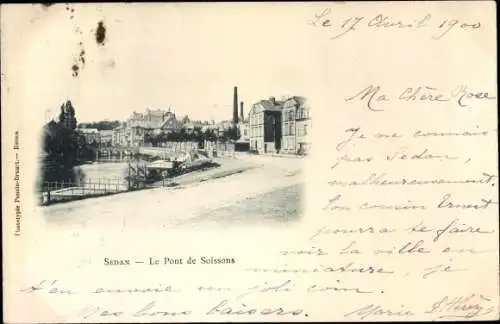 Le 17 Avril 1900
Ma Chère Rose
Je ne connais
pas Sedan,
malheureusement,
ton cousin Ernest
pourra te faire
voir la ville en
miniature, je
t'en envoie un joli coin.
Mes bons baisers. Marie
SEDAN — Le Pont de Soissons